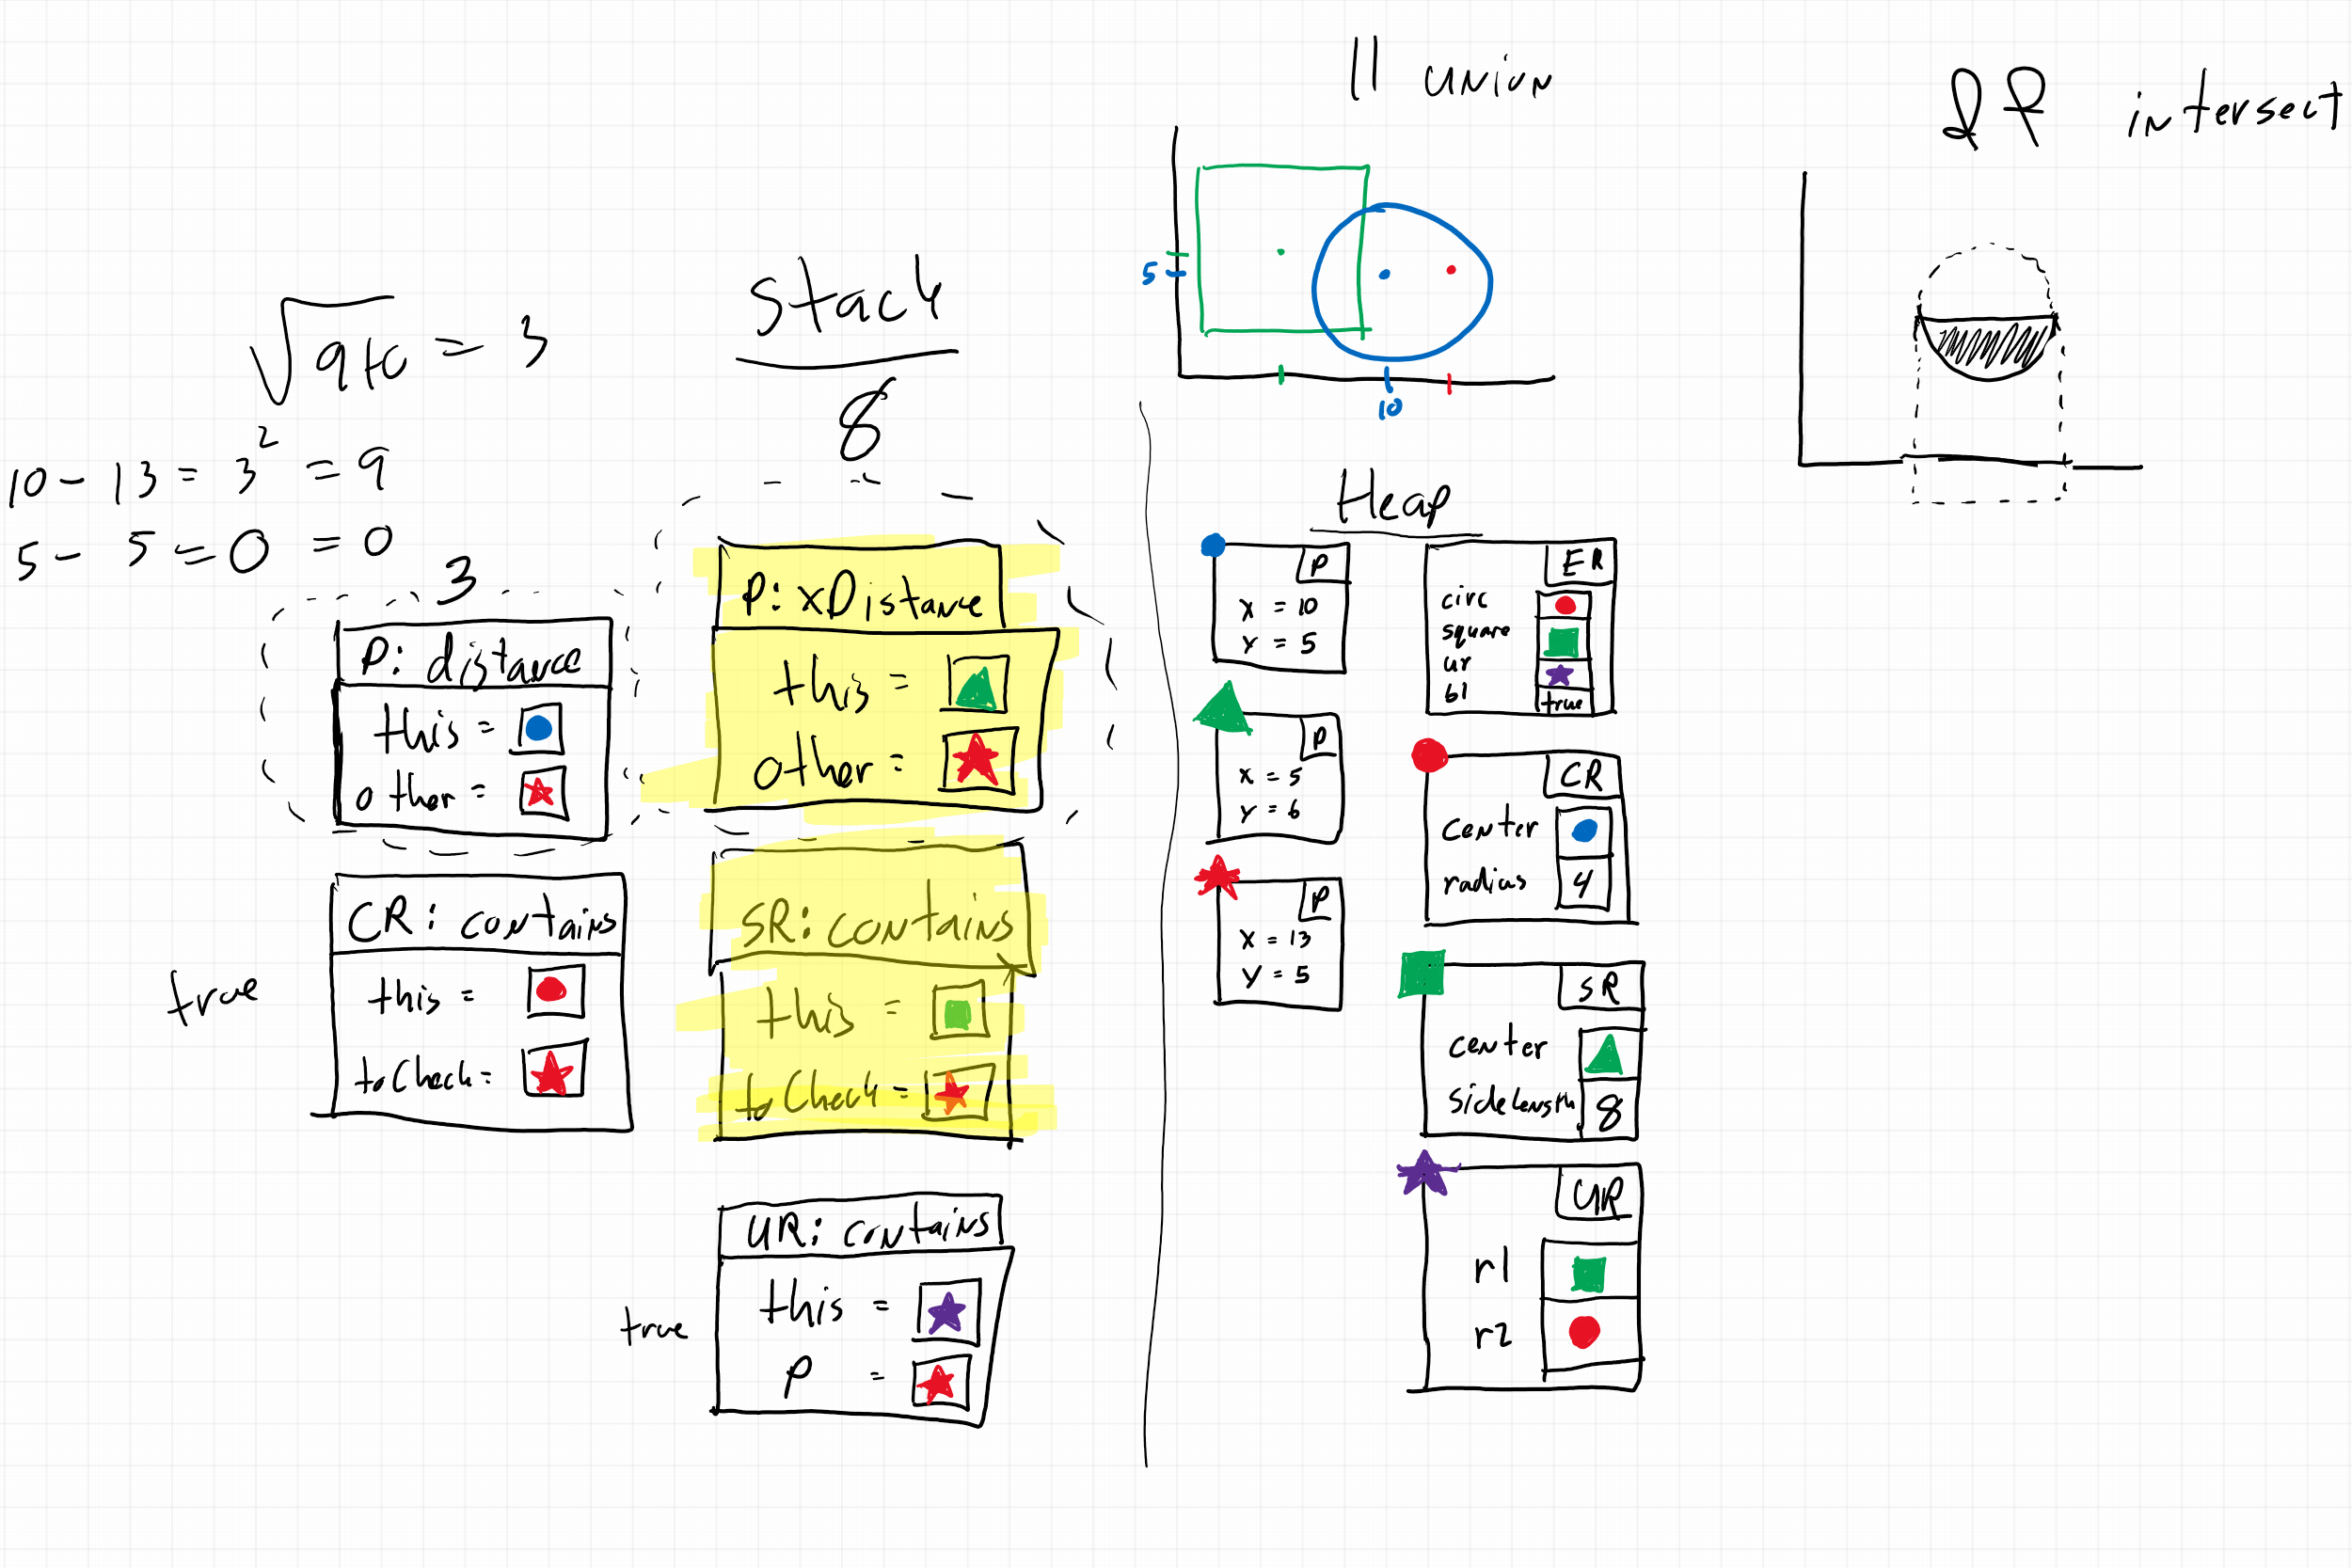 || union
&& intersect
5
10
Stack
8
√9+0 = 3
10 - 13 = 3² = 9
5 - 5 = 0 = 0
3
P: distance
this =
other =
CR: contains
true
this =
toCheck =
P: xDistance
this =
other =
SR: contains
this =
toCheck =
UR: contains
true
this =
P =
Heap
P
x = 10
Y = 5
P
x = 5
Y = 6
P
X = 13
Y = 5
ER
circ
square
ur
bl true
CR
center
radius 4
SR
center
sidelength 8
UR
r1
r2